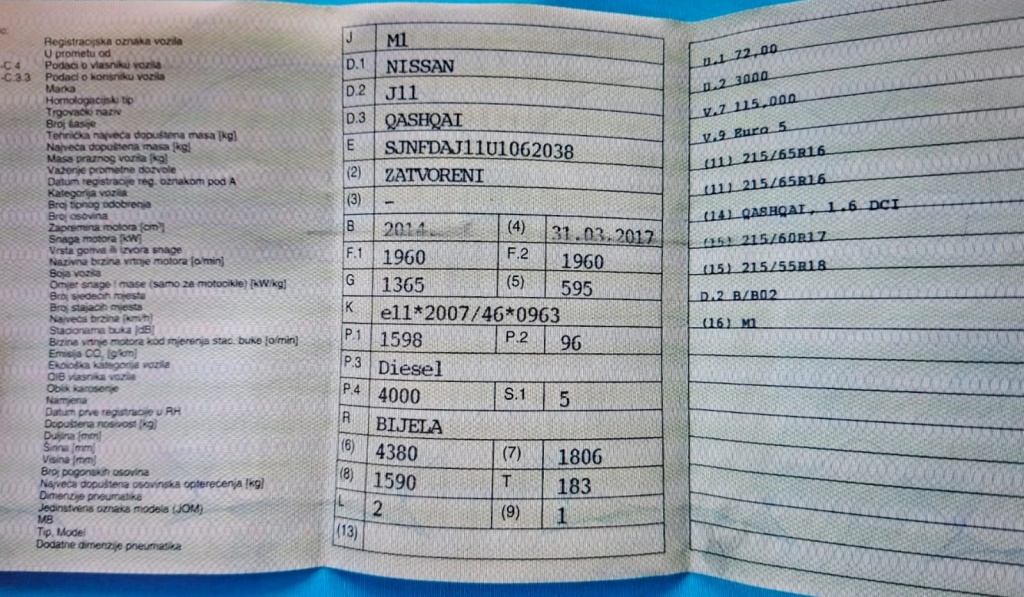 Registracijska oznaka vozila
U prometu od
-C.4 Podaci o vlasniku vozila
-C.3.3 Podaci o korisniku vozila
Marka
Homologacijski tip
Trgovački naziv
Broj šasije
Tehnička najveća dopuštena masa [kg]
Najveća dopuštena masa [kg]
Masa praznog vozila [kg]
Važenje prometne dozvole
Datum registracije reg. oznakom pod A
Kategorija vozila
Broj tipnog odobrenja
Broj osovina
Zapremina motora [cm³]
Snaga motora [kW]
Vrsta goriva ili izvora snage
Nazivna brzina vrtnje motora [o/min]
Boja vozila
Omjer snage i mase (samo za motocikle) [kW/kg]
Broj sjedećih mjesta
Broj stajaćih mjesta
Najveća brzina [km/h]
Stacionarna buka [dB]
Brzina vrtnje motora kod mjerenja stac. buke [o/min]
Emisija CO₂ [g/km]
Ekološka kategorija vozila
OIB vlasnika vozila
Oblik karoserije
Namjena
Datum prve registracije u RH
Dopuštena nosivost [kg]
Duljina [mm]
Širina [mm]
Visina [mm]
Broj pogonskih osovina
Najveća dopuštena osovinska opterećenja [kg]
Dimenzije pneumatika
Jedinstvena oznaka modela (JOM)
MB
Tip, Model
Dodatne dimenzije pneumatika
J M1
D.1 NISSAN
D.2 J11
D.3 QASHQAI
E SJNFDAJ11U1062038
(2) ZATVORENI
(3) –
B 2014. (4) 31.03.2017
F.1 1960 F.2 1960
G 1365 (5) 595
K e11*2007/46*0963
P.1 1598 P.2 96
P.3 Diesel
P.4 4000 S.1 5
R BIJELA
(6) 4380 (7) 1806
(8) 1590 T 183
L 2 (9) 1
(13)
U.1 72,00
U.2 3000
V.7 115,000
V.9 Euro 5
(11) 215/65R16
(11) 215/65R16
(14) QASHQAI, 1.6 DCI
(15) 215/60R17
(15) 215/55R18
D.2 B/B02
(16) M1